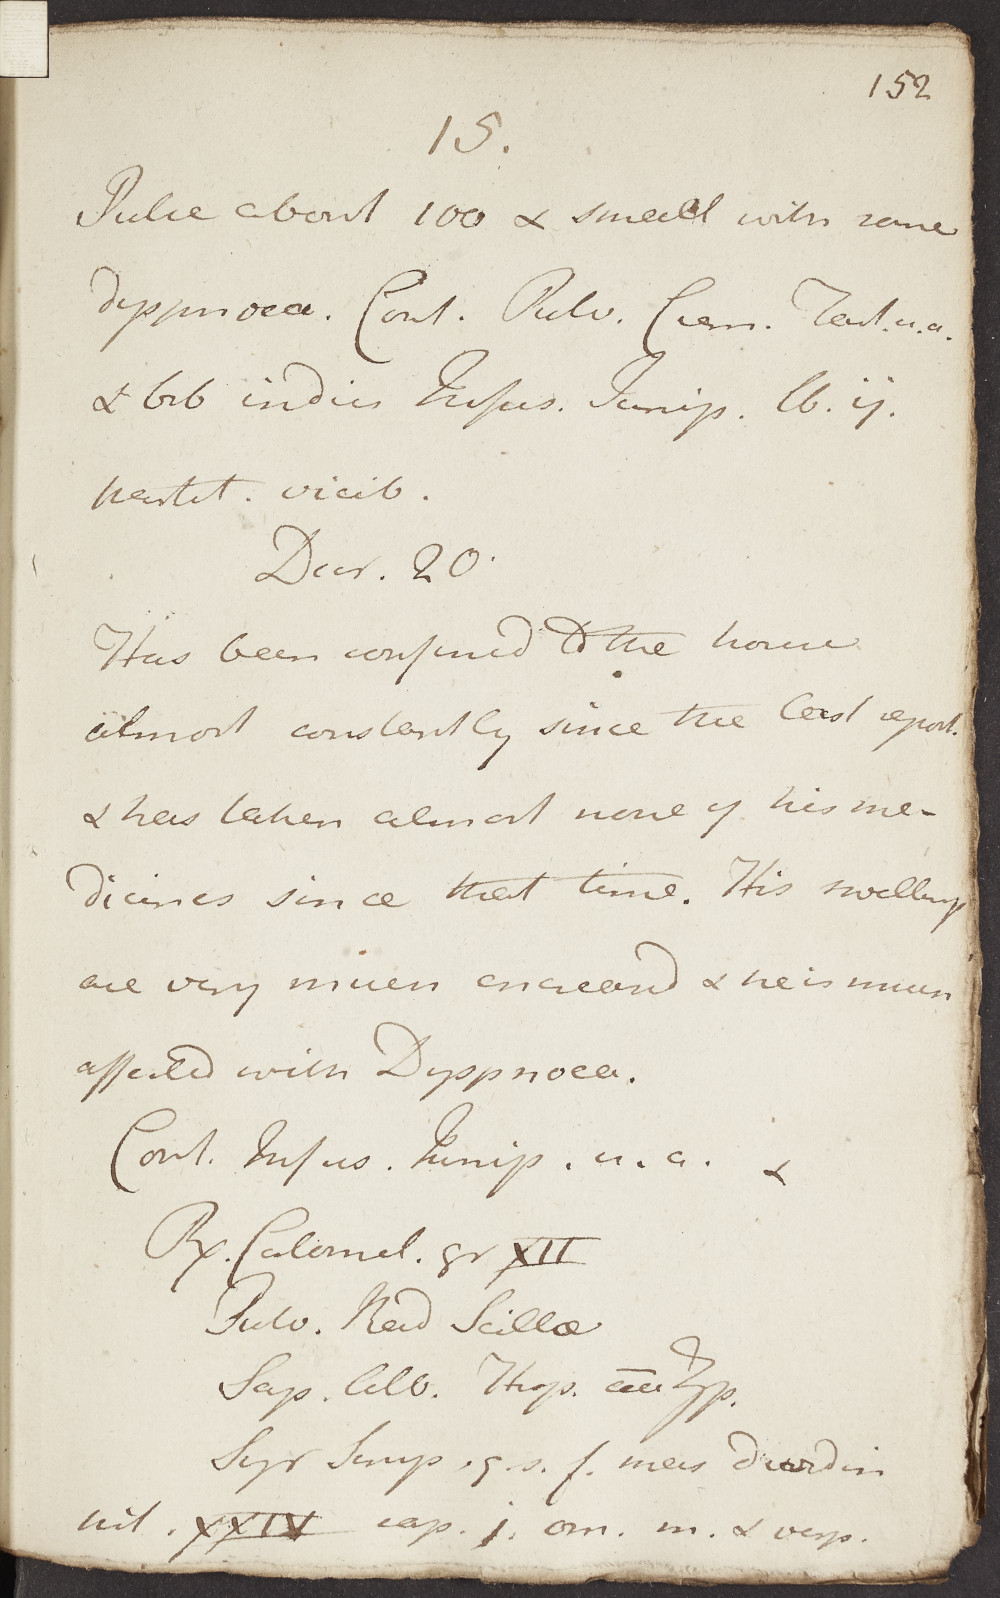 152
15.
Pulse about 100 & small with some
dyspnoea. Cont. Pulv. Crem. Tart. u.a.
& bib indies Infus. Junip. lb. ij.
partit. vicib.
Decr. 20.
Has been confined to the house
almost constantly since the last report.
& has taken almost none of his me-
dicines since that time. His swellings
are very much encreased & he is much
affected with Dyspnoea.
Cont. Infus. Junip. u. a. &
Rx. Calomel. gr XII
Pulv. Rad Scillae
Sap. alb. Hisp. aa ʒp.
Syr Simp. q.s. f. mass dividen
in pil. XXIV cap. j. om. m. & vesp.